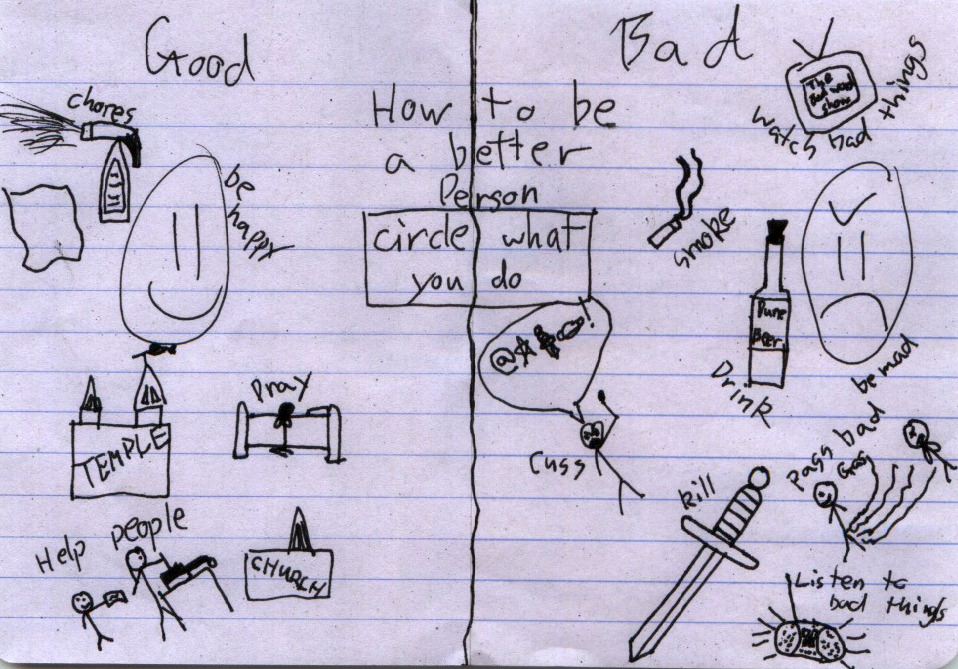 Good
Bad
How to be
a better
Person
circle what
you do
chores
be happy
TEMPLE
Pray
Help people
CHURCH
The
Bad word
show
watch bad things
smoke
Pure
Beer
Drink
be mad
@
!
cuss
kill
Pass bad
Gas
Listen to
bad things